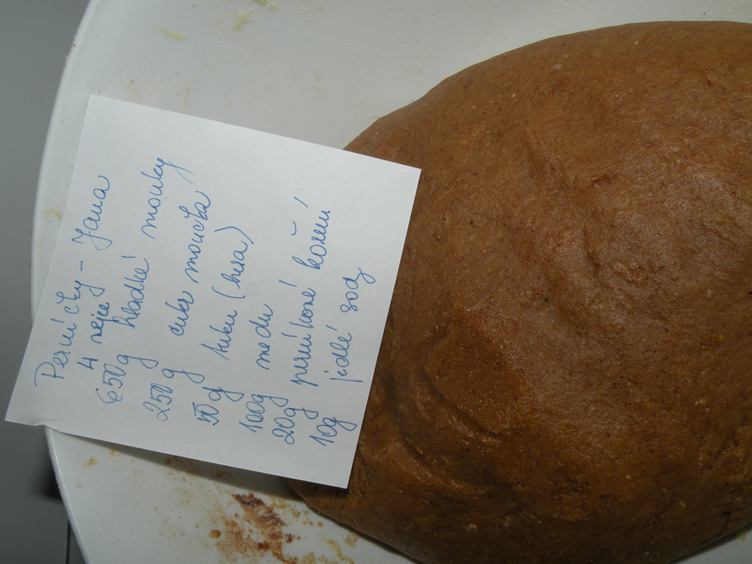 Perníčky - Jana
4 vejce
650g hladké mouky
250g cukr moučka
50g tuku (hera)
100g medu
20g perníkové koření
10g jedlé sody